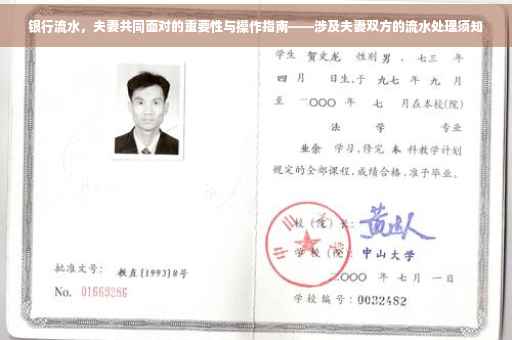 银行流水，夫妻共同面对的重要性与操作指南——涉及夫妻双方的流水处理须知
学生 贺文龙 性别 男 、七三 年
四 月 日生,于 九七 年 九 月
至 二〇〇〇 年 七 月在本校(院)
法 学 专业
业余 学习,修完 本 科教学计划
规定的全部课程,成绩合格,准予毕业。
校(院)长:
学校(院): 中山大学
二〇〇〇 年 七 月 一 日
学校编号: 0032482
批准文号: 教直[1993]8号
No. 01669286